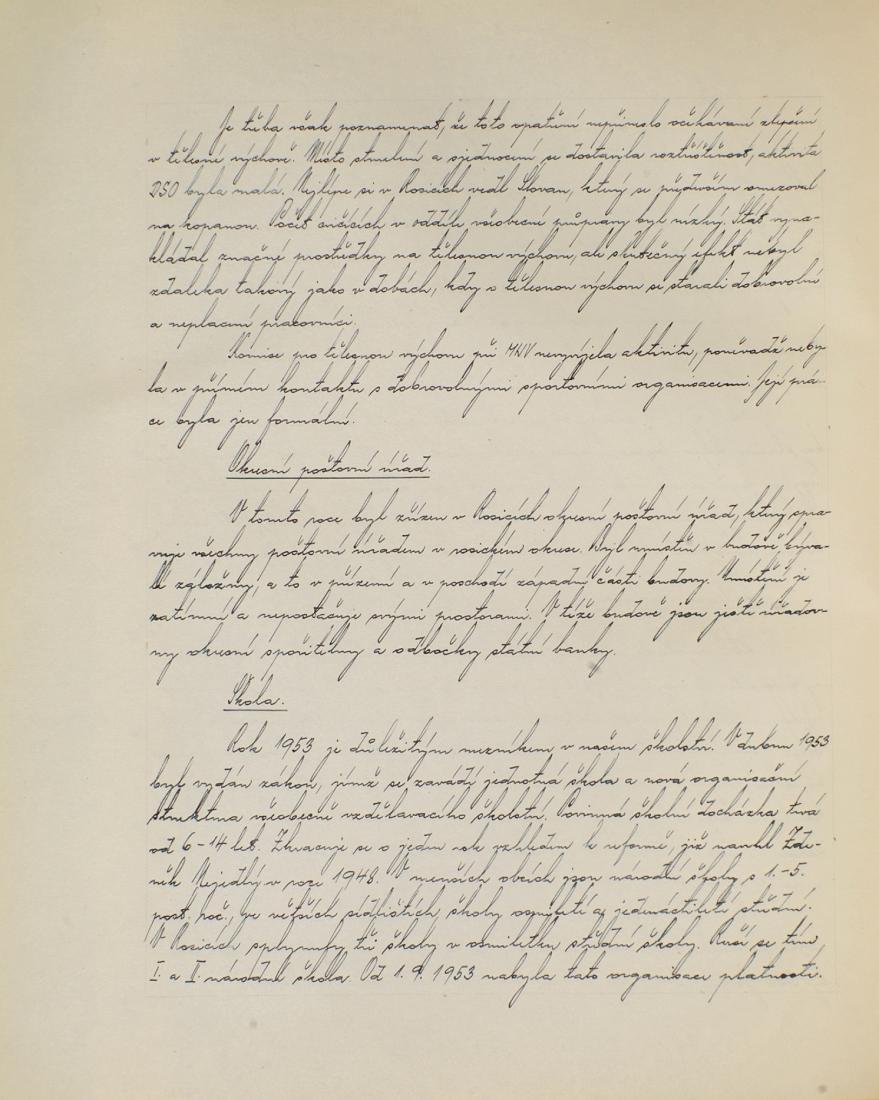 Je třeba však poznamenat, že toto opatření nepřineslo očekávané zlepšení
v tělesné výchově. Místo stmelení a sjednocení se dostavila roztříštěnost, aktivita
DSO byla malá. Nejlépe si v Rosicích vedl Slovan, který se především omezoval
na kopanou. Počet cvičících v oddíle všeobecné průpravy byl nízký. Stát vyna-
kládal značné prostředky na tělesnou výchovu, ale skutečný efekt nebyl
zdaleka takový jako v dobách, kdy o tělesnou výchovu se starali dobrovolní
a neplacení pracovníci.
Komise pro tělesnou výchovu při MNV nevyvíjela aktivitu, poněvadž neby-
la v přímém kontaktu s dobrovolnými sportovními organisacemi. Její prá-
ce byla jen formální.
Okresní poštovní úřad.
V tomto roce byl zřízen v Rosicích okresní poštovní úřad, který spra-
vuje všechny poštovní úřadem v rosickém okrese. Byl umístěn v budově býva-
lé záložny, a to v přízemí a v poschodí západní části budovy. Umístění je
zatímní a nepostačuje svými prostorami. V téže budově jsou ještě úřadov-
ny okresní spořitelny a odbočky státní banky.
Škola.
Rok 1953 je důležitým mezníkem v našem školství. V dubnu 1953
byl vydán zákon, jímž se zavádí jednotná škola a nová organisační
struktura všeobecně vzdělavacího školství. Povinná školní docházka trvá
od 6-14 let. Zkracuje se o jeden rok vzhledem k reformě, již navrhl Zde-
něk Nejedlý v roce 1948. V menších obcích jsou národní školy s 1.-5.
post. roč., ve větších sídlištích školy osmileté a jedenáctileté střední.
V Rosicích splynuly tři školy v osmiletou střední školy. Ruší se tím
I. a II. národní škola. Od 1. 9. 1953 nabyla tato organisace platnosti.